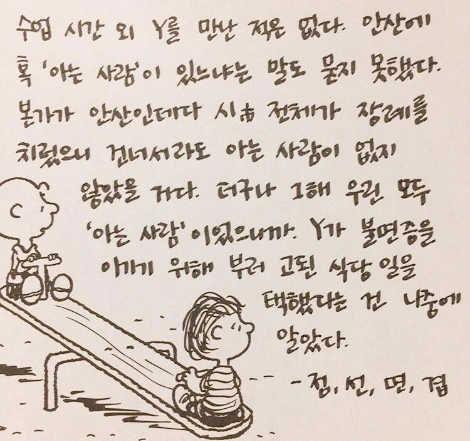 수업 시간 외 Y를 만난 적은 없다. 안산에
혹 '아는 사람'이 있느냐는 말도 묻지 못했다.
본가가 안산인데다 시市 전체가 장례를
치렀으니 건너서라도 아는 사람이 없지
않았을 거다. 더구나 그해 우린 모두
'아는 사람'이었으니까. Y가 불면증을
이기기 위해 부러 고된 식당 일을
택했다는 건 나중에
알았다.
- 점, 선, 면, 겹